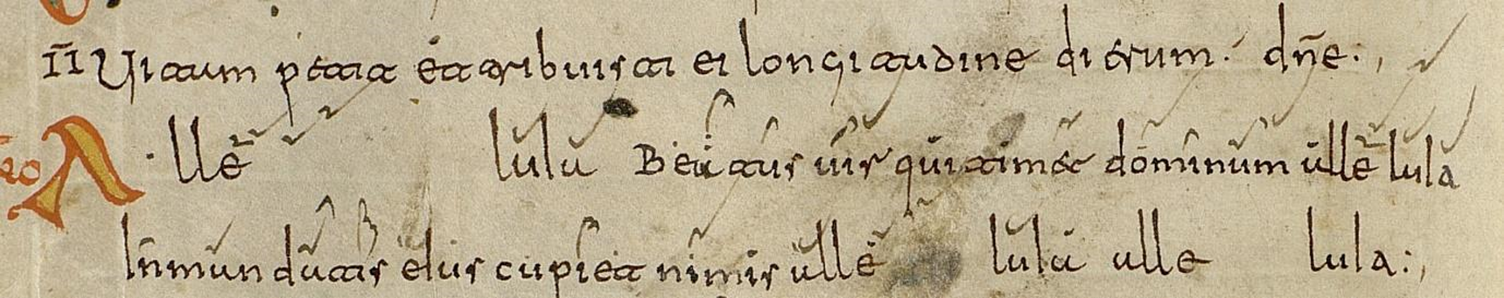 II Uitam petit et tribuisti ei longitudine dierum. dñe.
Alle luia Beatus uir qui timet dominum alleluia
In mandatis eius cupiet nimis alle luia alle luia